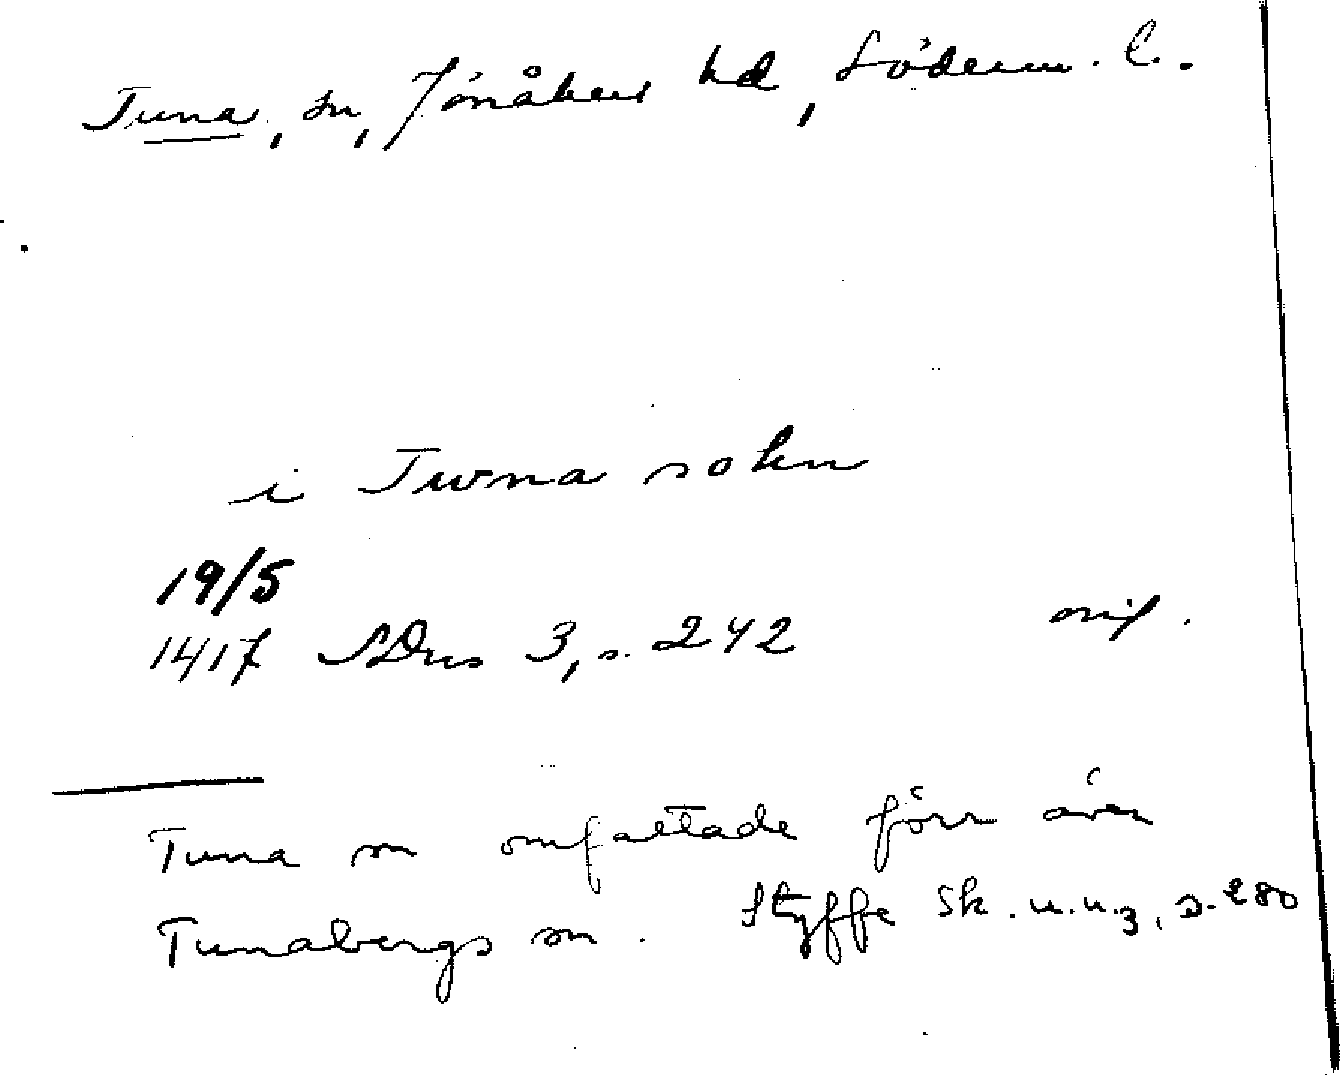 Tuna, sn, Jönåkers hd, Söderm. l.
i Twna sokn
19/5
1417 SDns 3, s. 242 orig.
Tuna sn omfattade förr även
Tunabergs sn. Styffe Sk. u. u. 3, s. 280